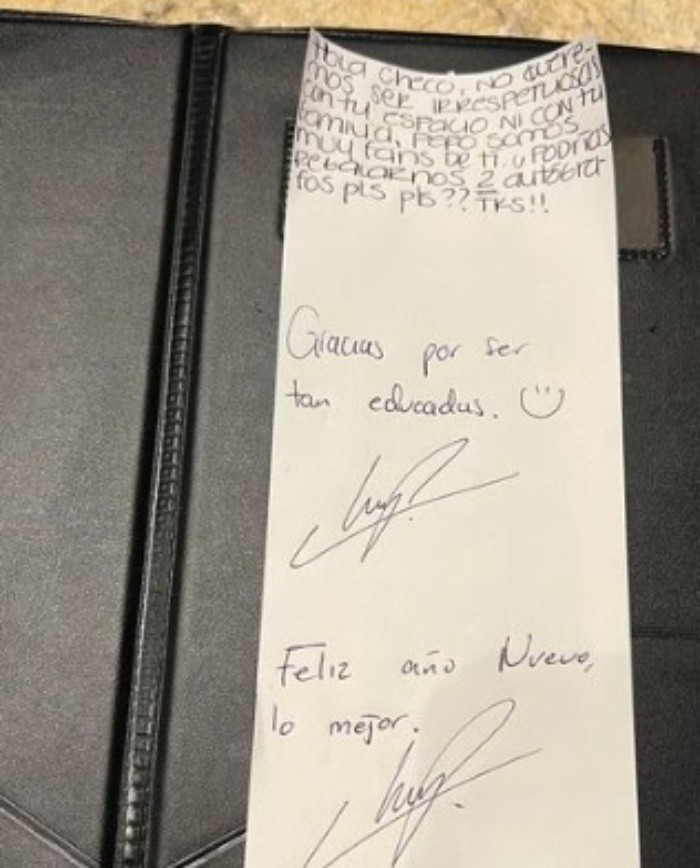 Hola CHECO, NO QUERE-
MOS SER IRRESPETUOSAS
CON TU ESPACIO NI CON TU
FAMILIA, PERO SOMOS
MUY fans DE TI. ¿PODRÍAS
REGALARNOS 2 autógra-
fos pls pls?? TKS!!
Gracias por ser
tan educadas.
Feliz año Nuevo,
lo mejor.